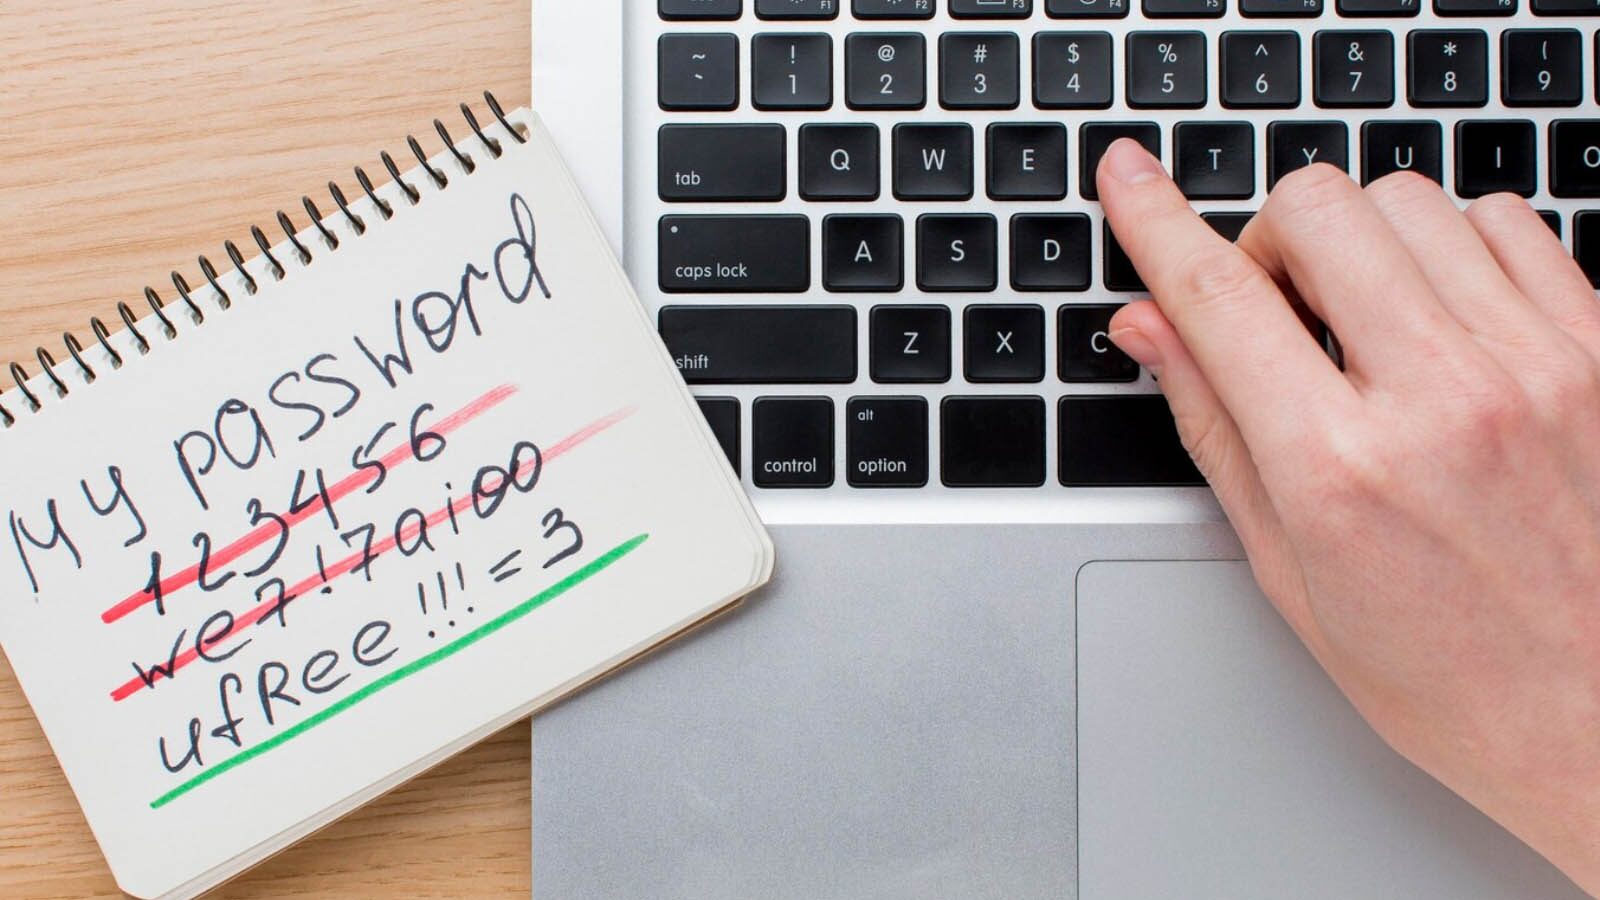 My password
123456
we7!7aioo
ufRee!!!=3
F1 F2 F3 F4 F5 F6 F7 F8
~ ` ! 1 @ 2 # 3 $ 4 % 5 ^ 6 & 7 * 8 ( 9
tab Q W E T Y U I O
caps lock A S D
shift Z X C
control alt option